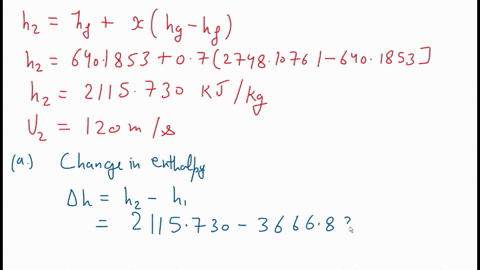 h₂ = hf + x(hg-hf)
h₂ = 640.1853 + 0.7(2748.1076 - 640.1853]
h₂ = 2115.730 KJ/kg
U₂ = 120 m/s
(a.) Change in enthalpy
Δh = h₂ - h₁
= 2115.730 - 3666.8